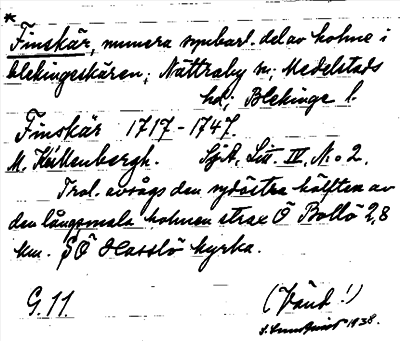 *
Finskär, numera synbarl. del av holme i
Blekingeskären; Nättraby sn; Medelstads
hd; Blekinge l.
Finskär 1717-1747.
M. Källenbergh. Sjök. Litt. IV, No 2.
Trol. avsågs den sydöstra hälften av
den långsmala holmen strax Ö Bollö 2,8
km. SÖ Hasslö kyrka.
G. 11. (Vänd!)
1938.